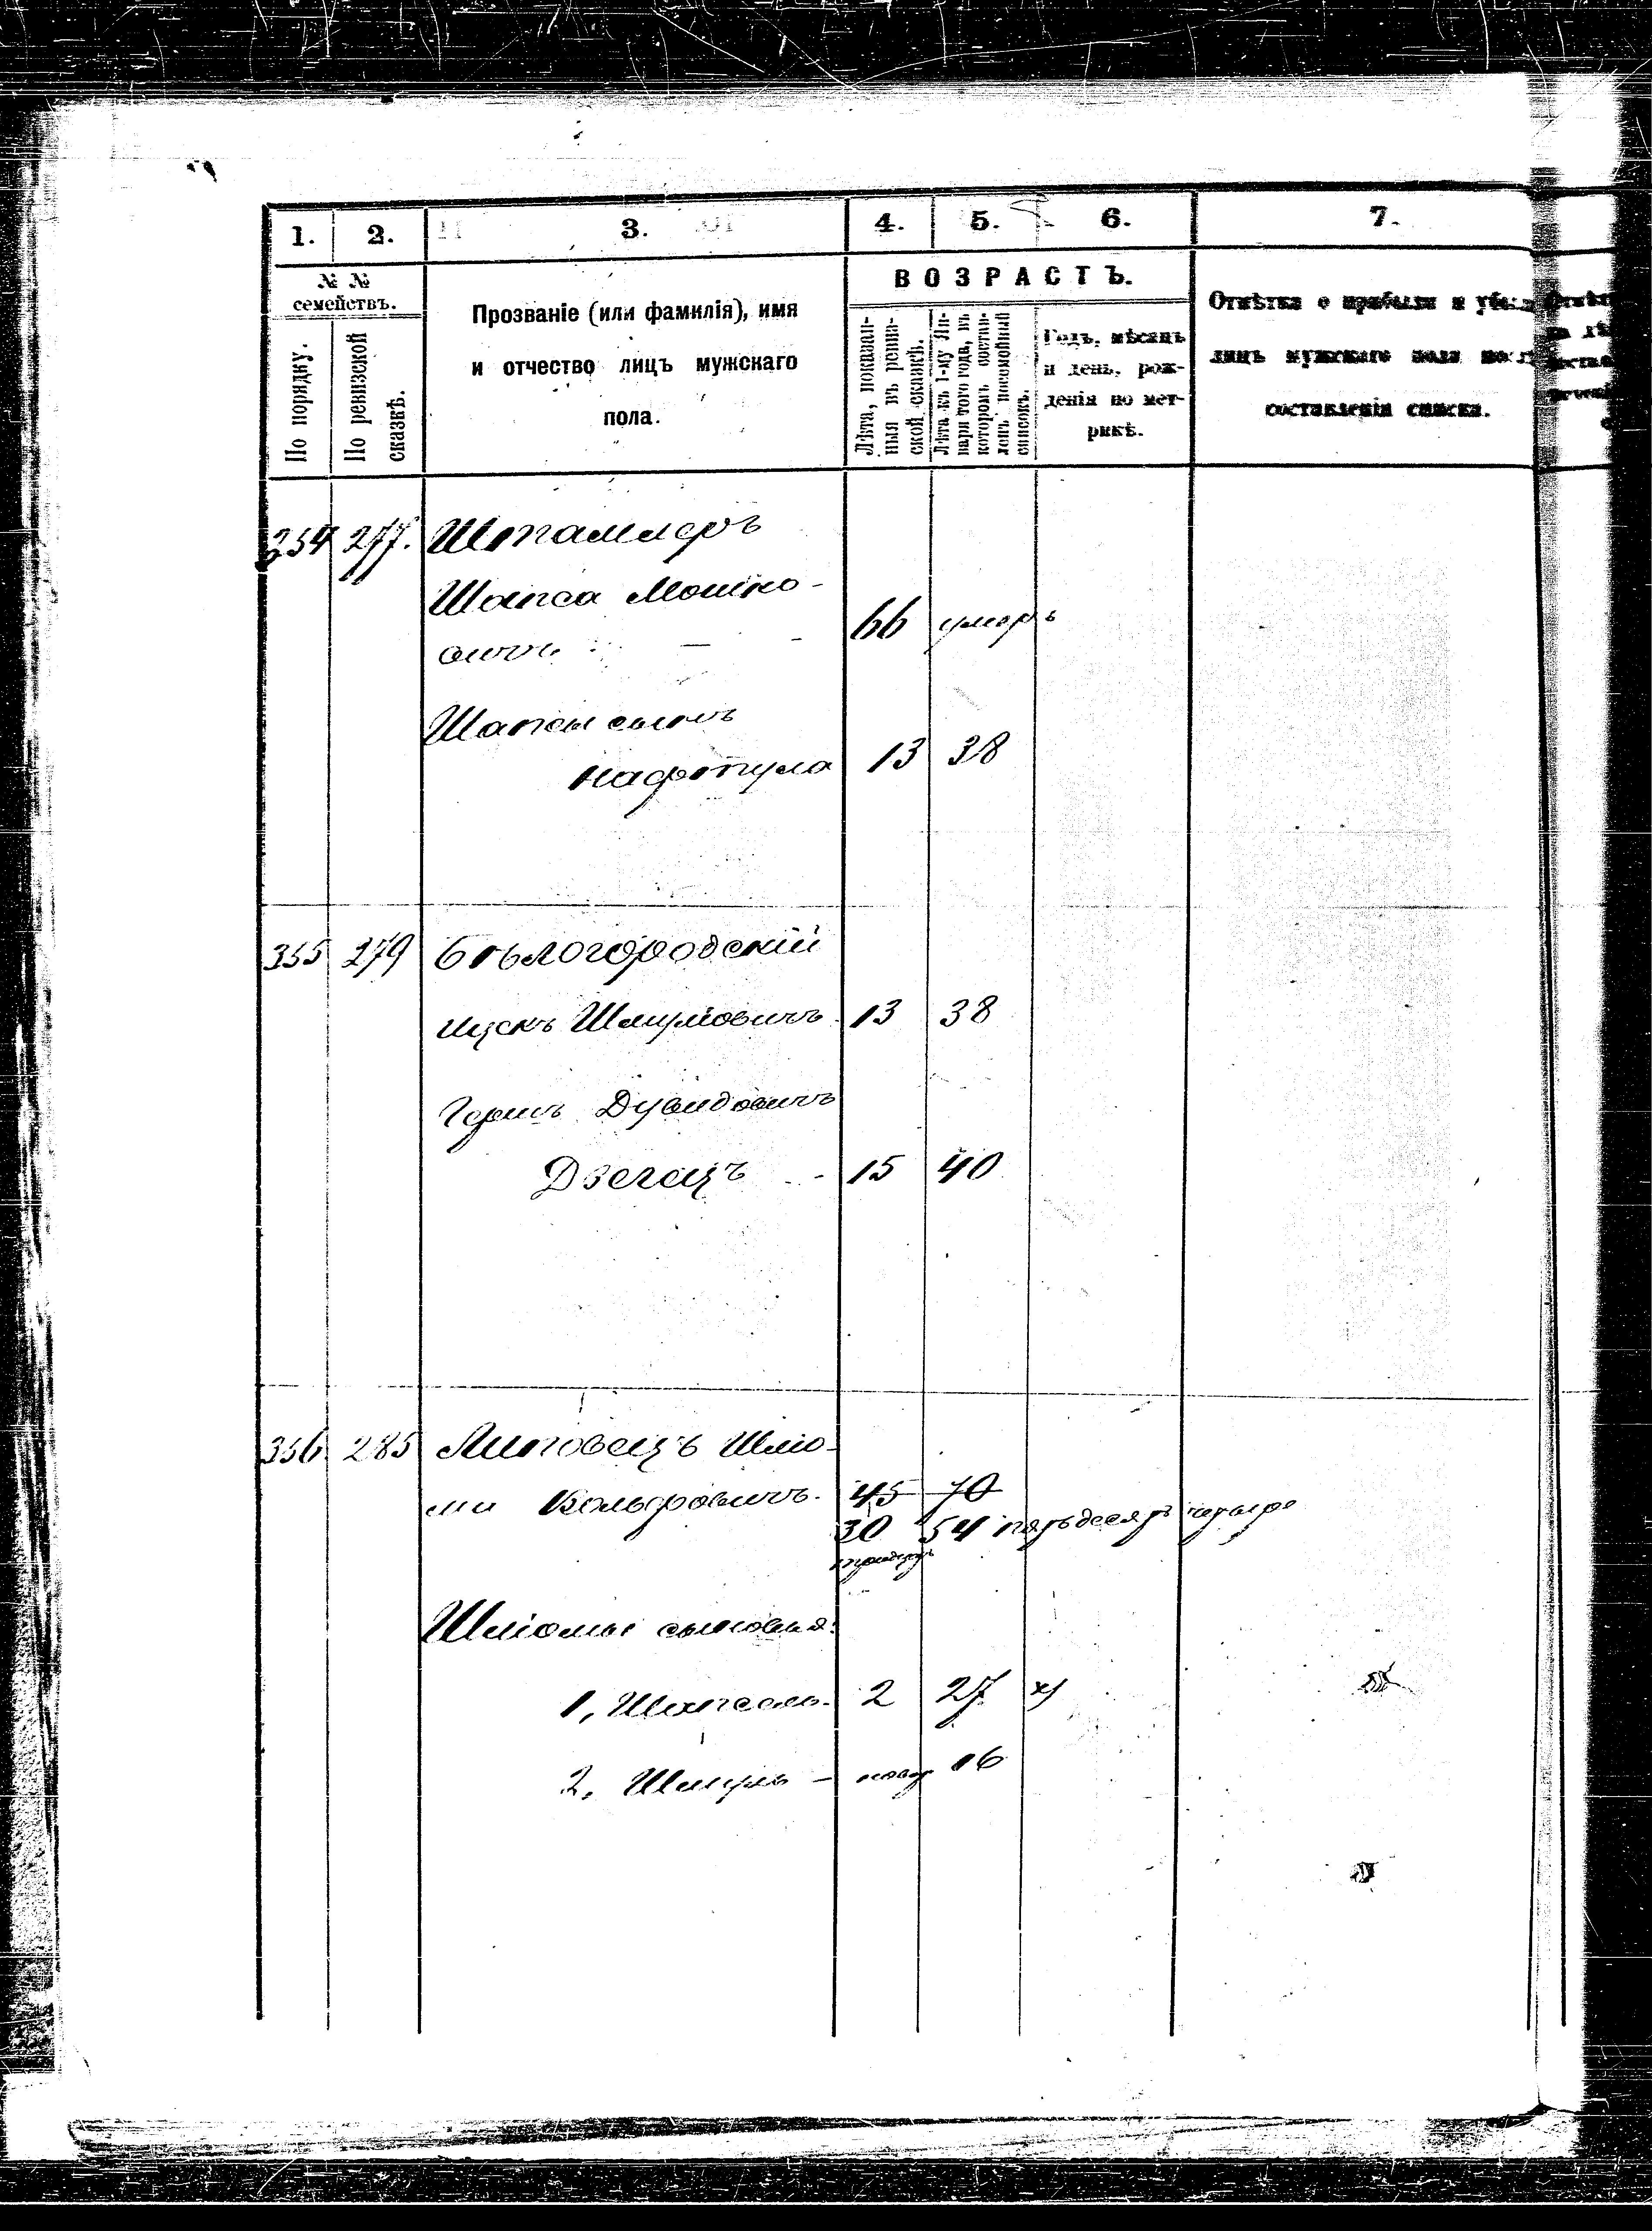 1. 2. 3. 4. 5. 6. 7.
№ №
семействъ.
По порядку.
По ревизской
сказкѣ.
Прозваніе (или фамилія), имя
и отчество лицъ мужскаго
пола.
ВОЗРАСТЪ.
Лѣта, показан-
ныя въ ревиз-
ской сказкѣ.
Лѣта къ 1-му Ян-
варя того года, въ
которомъ состав-
ленъ посемейный
списокъ.
Годъ, мѣсяцъ
и день, рож-
денія по мет-
рикѣ.
Отмѣтка о прибыли и убыли
лицъ мужскаго пола послѣ
составленія списка.
354 277. Штамлеръ
Шапса Мошко-
вичъ 66 умеръ
Шапсы сынъ
Нафтула 13 38
355 279 Бѣлогородскій
Ицекъ Шмулiовичъ 13 38
Гершъ Дувидовичъ
Двегацъ 15 40
356. 285 Липовецъ Шлiо-
ма Вольфовичъ. 45 70
30 54 пятьдесятъ четыре
тридцать
Шлiомы сыновья:
1, Шапсель. 2 27 х)
2, Шмуль – новор 16